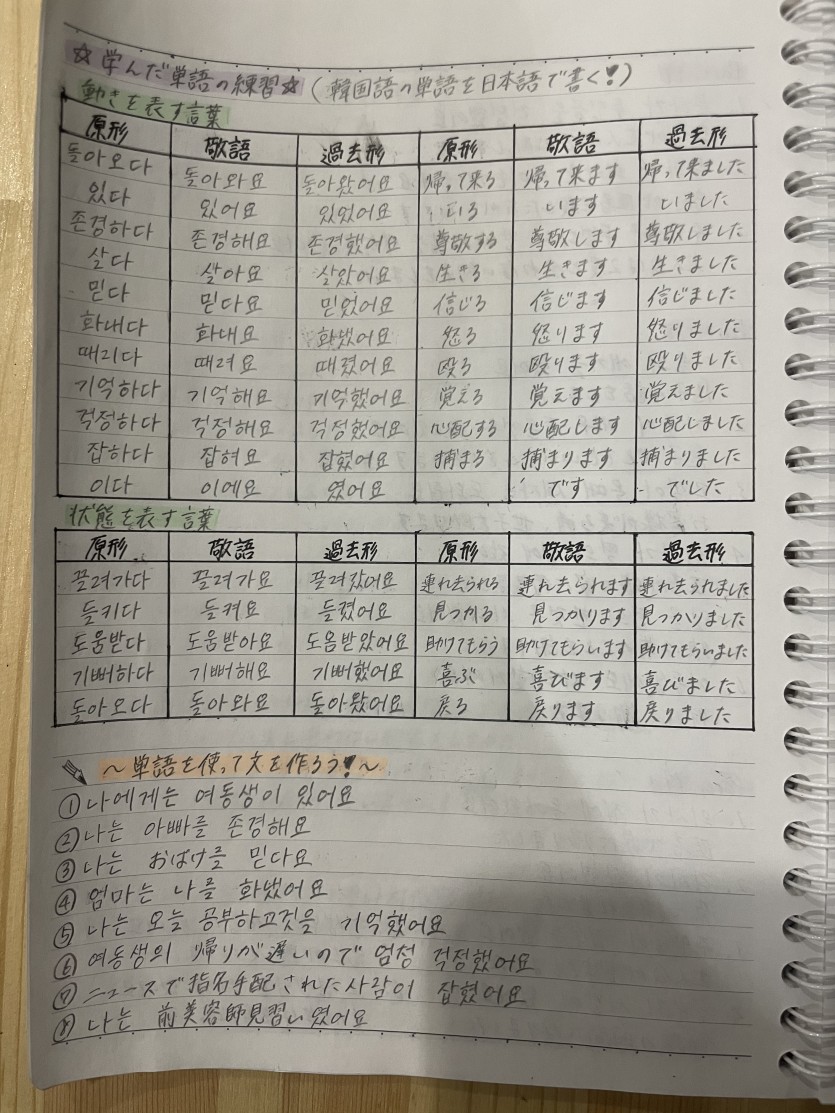 ☆学んだ単語の練習☆(韓国語の単語を日本語で書く!)
動きを表す言葉
原形 敬語 過去形 原形 敬語 過去形
돌아오다 돌아와요 돌아왔어요 帰って来る 帰って来ます 帰って来ました
있다 있어요 있있어요 いる います いました
존경하다 존경해요 존경했어요 尊敬する 尊敬します 尊敬しました
살다 살아요 살았어요 生きる 生きます 生きました
믿다 믿다요 믿었어요 信じる 信じます 信じました
화내다 화내요 화냈어요 怒る 怒ります 怒りました
때리다 때려요 때렸어요 殴る 殴ります 殴りました
기억하다 기억해요 기억했어요 覚える 覚えます 覚えました
걱정하다 걱정해요 걱정했어요 心配する 心配します 心配しました
잡하다 잡혀요 잡혔어요 捕まる 捕まります 捕まりました
이다 이에요 였어요 です でした
状態を表す言葉
原形 敬語 過去形 原形 敬語 過去形
끌려가다 끌려가요 끌려갔어요 連れ去られる 連れ去られます 連れ去られました
들키다 들켜요 들켰어요 見つかる 見つかります 見つかりました
도움받다 도움받아요 도움받았어요 助けてもらう 助けてもらいます 助けてもらいました
기뻐하다 기뻐해요 기뻐했어요 喜ぶ 喜びます 喜びました
돌아오다 돌아와요 돌아왔어요 戻る 戻ります 戻りました
〜単語を使って文を作ろう!〜
①나에게는 여동생이 있어요
②나는 아빠를 존경해요
③나는 おばけを 믿다요
④엄마는 나를 화냈어요
⑤나는 오늘 공부하고것을 기억했어요
⑥여동생의 帰りが遅いので 엄청 걱정했어요
⑦ニュースで指名手配された사람이 잡혔어요
⑧나는 前美容師見習い였어요